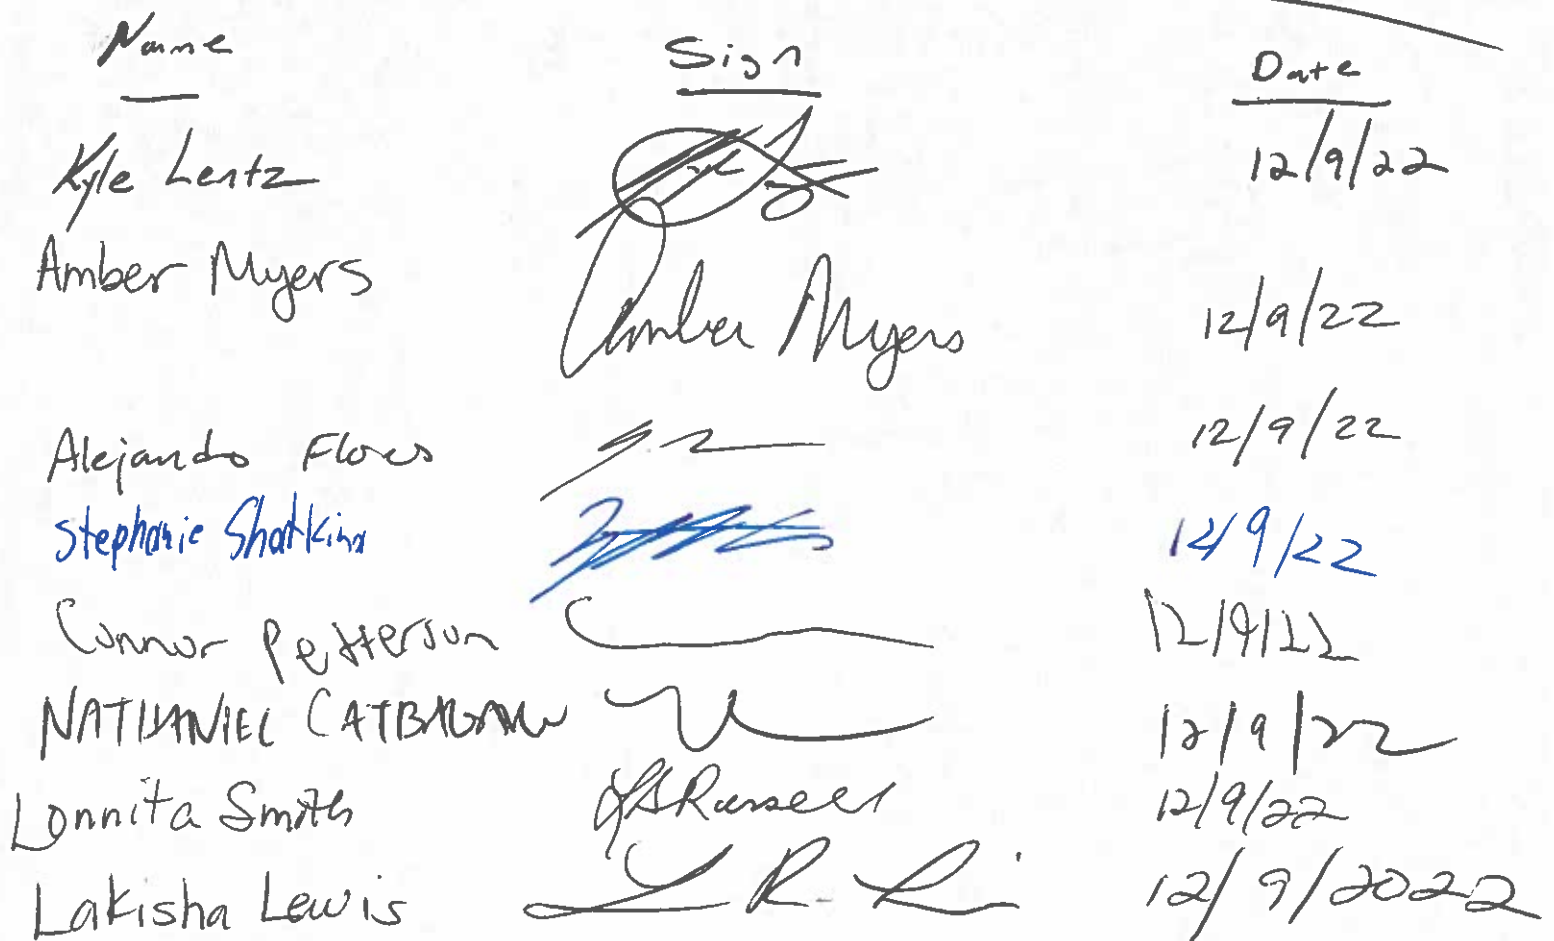 Name Sign Date
Kyle Lentz 12/9/22
Amber Myers Amber Myers 12/9/22
Alejandro Flores 12/9/22
Stephanie 12/9/22
Connor Petterson 12/9/22
NATHANIEL 12/9/22
Lonnita Smith LSRussell 12/9/22
Lakisha Lewis L R. L 12/9/2022